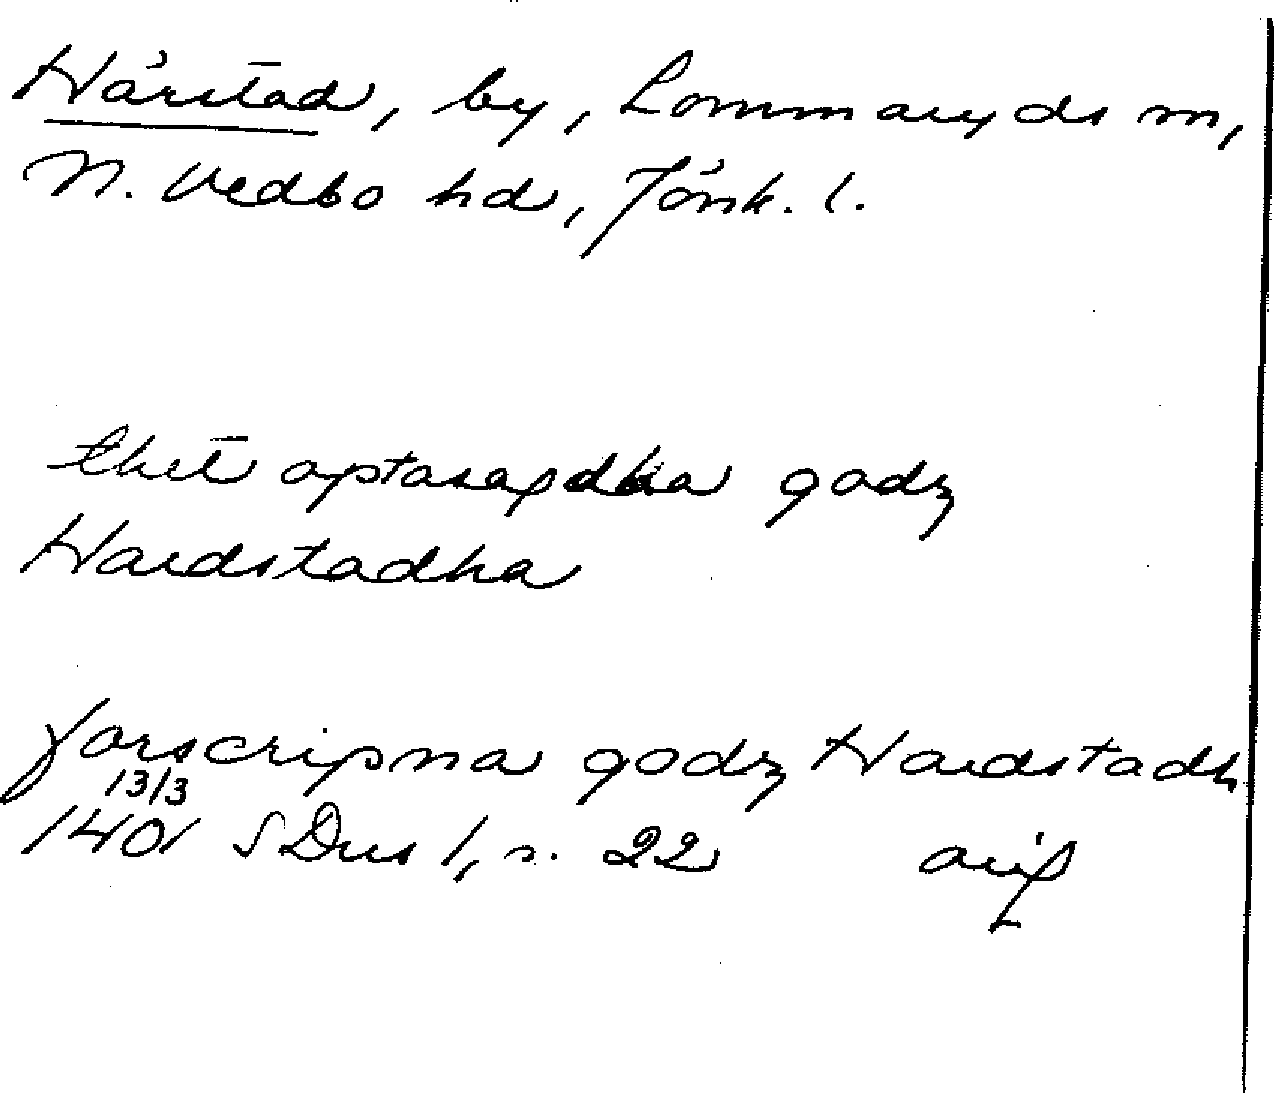 Hårstad, by, Lommaryds sn,
N. Vedbo hd, Jönk. l.
thet optasagdha godz
Hardstadha
forscripna godz Hardstadh
13/3
1401 SDns 1, s. 22 avs